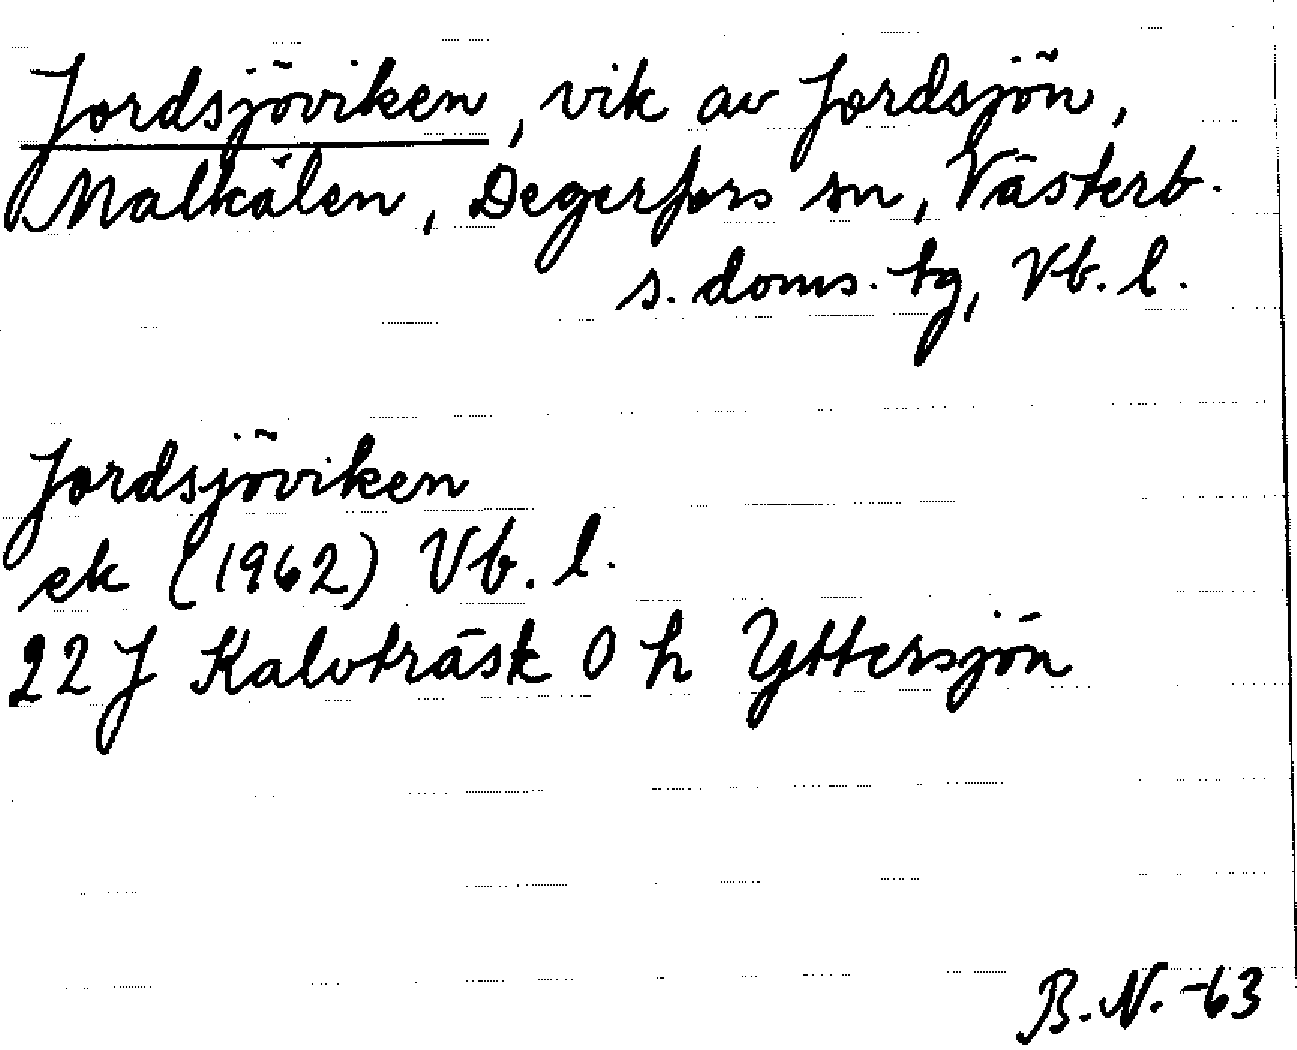 Jordsjöviken, vik av Jordsjön,
Malkälen, Degerfors sn, Västerb.
s. doms. tg, Vb. l.
Jordsjöviken
ek (1962) Vb. l.
22 J Kalvträsk 0 h Yttersjön
B. N. -63